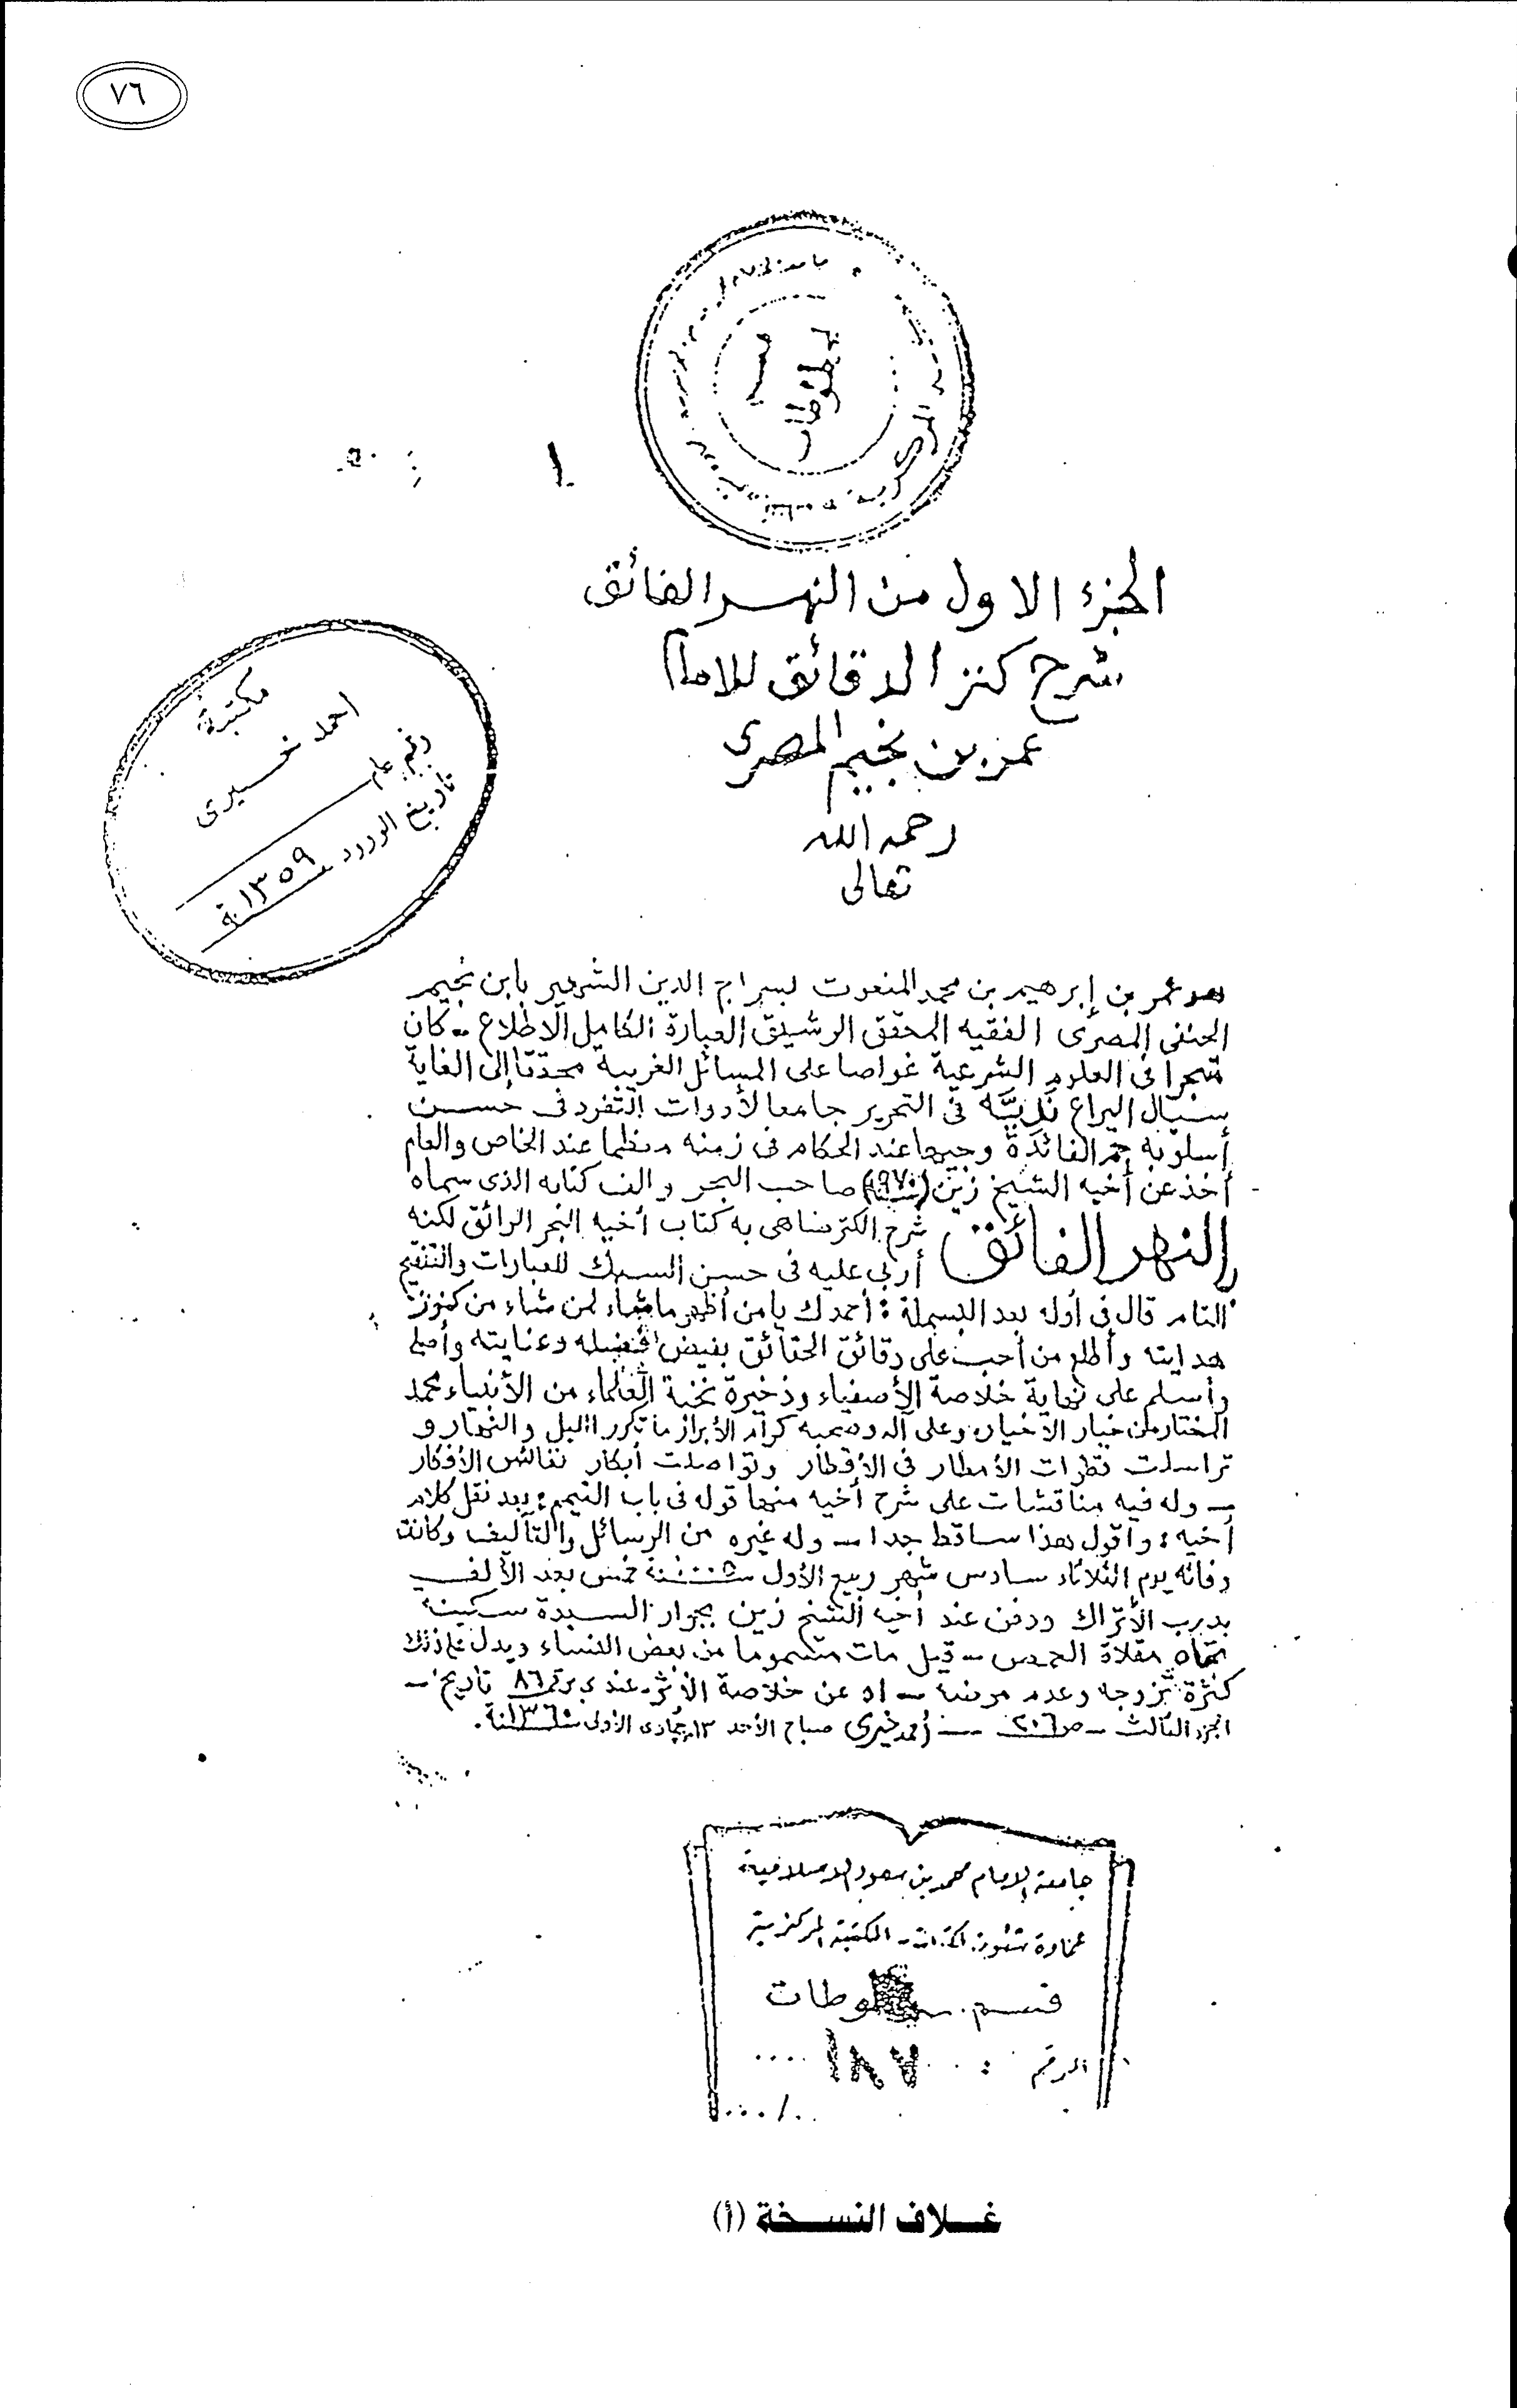 ٧٦
المركزية
مخطوطات
قسم
١
الجزء الاول من النهر الفائق
شرح كنز الدقائق للامام
عمر بن نجيم المصرى
رحمه الله
تعالى
مكتبة
احمد خيرى
رقم عام
تاريخ الورود ١٣٥٩
هو عمر بن إبرهيم بن محمد المنعوت بسراج الدين الشهير بابن نجيم
الحنفى المصرى الفقيه المحقق الرشيق العبارة الكامل الاطلاع - كان
متبحرا فى العلوم الشرعية غواصا على المسائل الغريبة محققا إلى الغاية
سيال اليراع نَدِيَّه فى التحرير جامعا لأدوات التفرد فى حسن
أسلوبه جم الفائدة وجيها عند الحكام فى زمنه معظما عند الخاص والعام
أخذ عن أخيه الشيخ زين (٩٧٠) صاحب البحر والف كتابه الذى سماه
النهر الفائق شرح الكنز ضاهى به كتاب أخيه البحر الرائق لكنه
أربى عليه فى حسن السبك للعبارات والتنقيح
التام قال فى أوله بعد البسملة : أحمدك يا من أظهر ما شاء لمن شاء من كنوز
هدايته وأطلع من أحب على دقائق الحقائق بفيض فضله وعنايته وأصلى
وأسلم على نهاية خلاصة الأصفياء وذخيرة نخبة العلماء من الأنبياء محمد
المختار من خيار الأخيار وعلى آله وصحبه كرام الأبرار ما تكرر الليل والنهار و
تراسلت قطرات الأمطار فى الأقطار وتواصلت أبكار نفائس الأفكار
- وله فيه مناقشات على شرح أخيه منها قوله فى باب التيمم : بعد نقل كلام
أخيه : وأقول هذا ساقط جدا - وله غيره من الرسائل والتآليف وكانت
وفاته يوم الثلاثاء سادس شهر ربيع الأول سنة ١٠٠٥ خمس بعد الألف
بدرب الأتراك ودفن عند أخيه الشيخ زين بجوار السيدة سكينة
تجاه مقلاة الحمص - قيل مات مسموما من بعض النساء ويدل على ذلك
كثرة تزوجه وعدم مرضه - اه عن خلاصة الأثر عندى برقم ٨٦ تاريخ -
الجزء الثالث - ص ٢٠٦ - أحمد خيرى صباح الأحد ١٣ جمادى الأولى سنة ١٣٦٠.
جامعة الامام محمد بن سعود الاسلامية
عمادة شئون المكتبات - المكتبة المركزية
قسم المخطوطات
الرقم : ١٨٧
غلاف النسخة (أ)